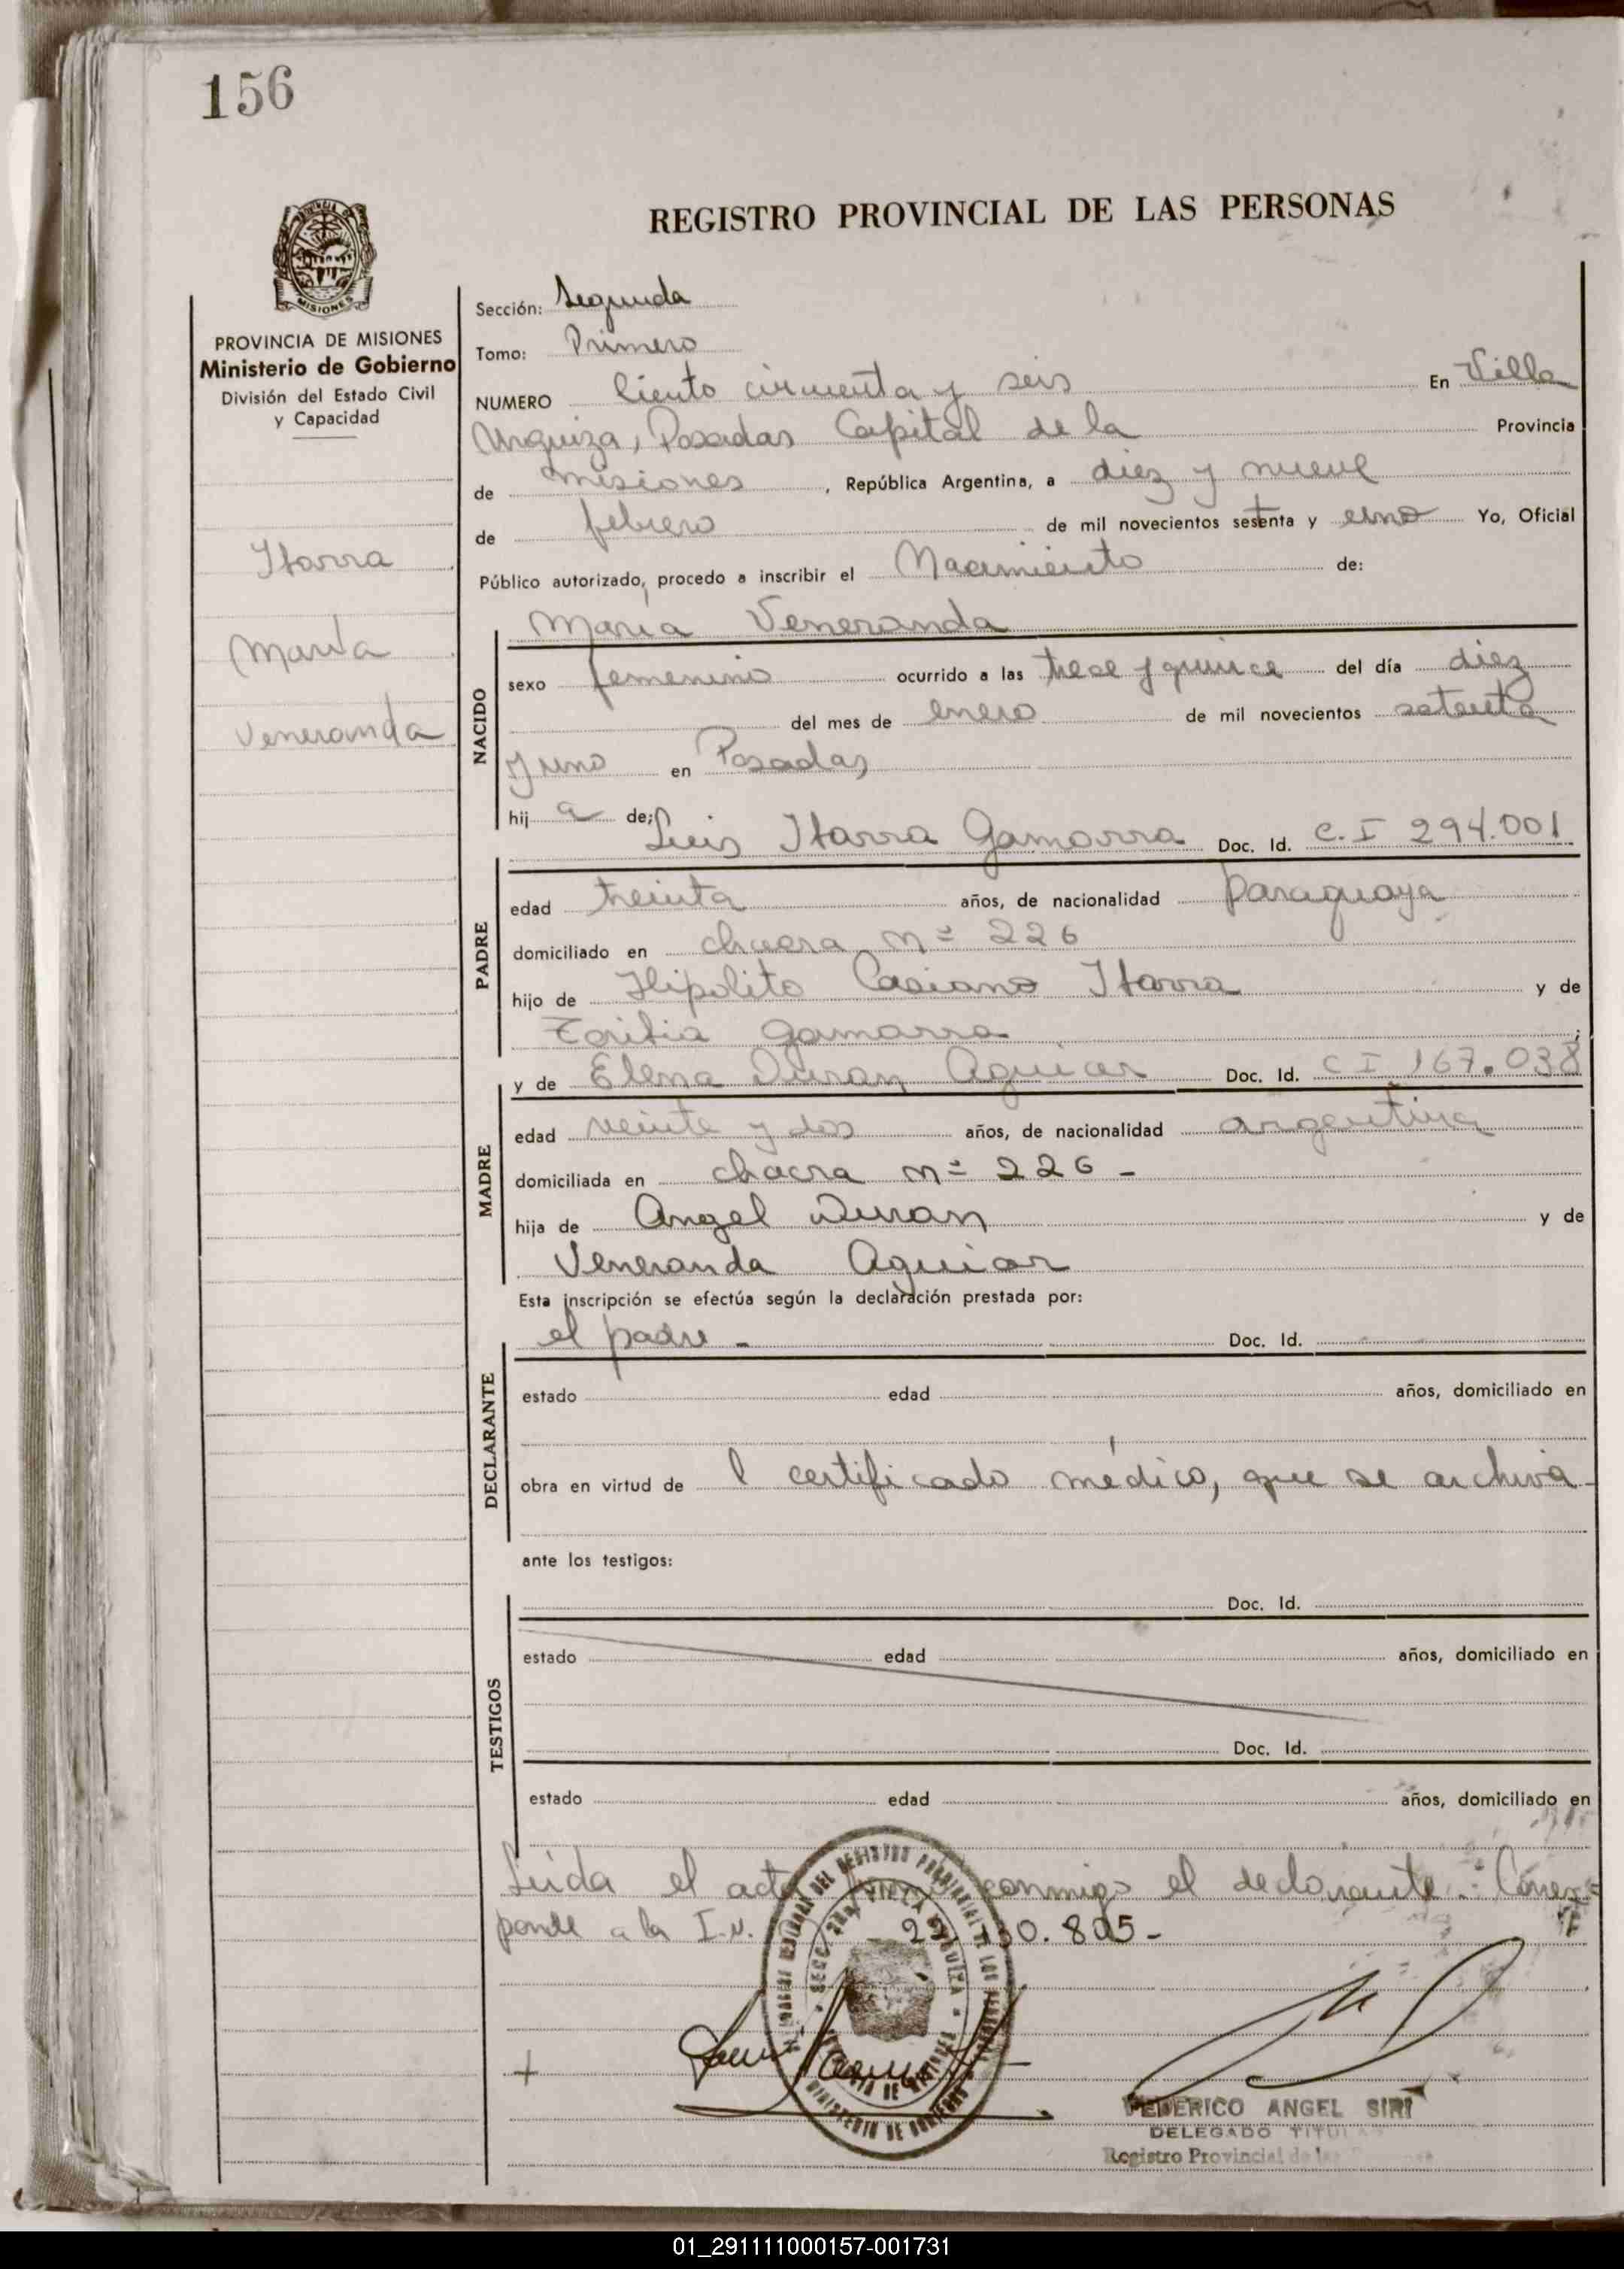 156
REGISTRO PROVINCIAL DE LAS PERSONAS
MISIONES
PROVINCIA DE MISIONES
Ministerio de Gobierno
División del Estado Civil
y Capacidad
Itarra
María
Veneranda
Sección: Segunda
Tomo: Primero
NUMERO Ciento cincuenta y seis En Villa
Urquiza, Posadas Capital de la Provincia
de misiones, República Argentina, a diez y nueve
de febrero de mil novecientos setenta y uno Yo, Oficial
Público autorizado, procedo a inscribir el Nacimiento de:
María Veneranda
NACIDO
sexo femenino ocurrido a las trece y quince del día diez
del mes de enero de mil novecientos setenta
y uno en Posadas
hij a de;
Luis Itarra Gamarra Doc. Id. C. I 294.001
PADRE
edad treinta años, de nacionalidad paraguaya
domiciliado en chacra nº 226
hijo de Hipolito Casiano Itarra y de
Toribia Gamarra;
y de Elena Duran Aguiar Doc. Id. C I 167.038
MADRE
edad veinte y dos años, de nacionalidad argentina
domiciliada en chacra nº 226 -
hija de Angel Duran y de
Veneranda Aguiar
Esta inscripción se efectúa según la declaración prestada por:
el padre - Doc. Id.
DECLARANTE
estado edad años, domiciliado en
obra en virtud de l certificado médico, que se archiva
ante los testigos:
Doc. Id.
TESTIGOS
estado edad años, domiciliado en
Doc. Id.
estado edad años, domiciliado en
Leída el acta conmigo el declarante.: Corres=
ponde a la I.N. 805-
FEDERICO ANGEL SIRI
DELEGADO TITULAR
Registro Provincial de las
01_291111000157-001731